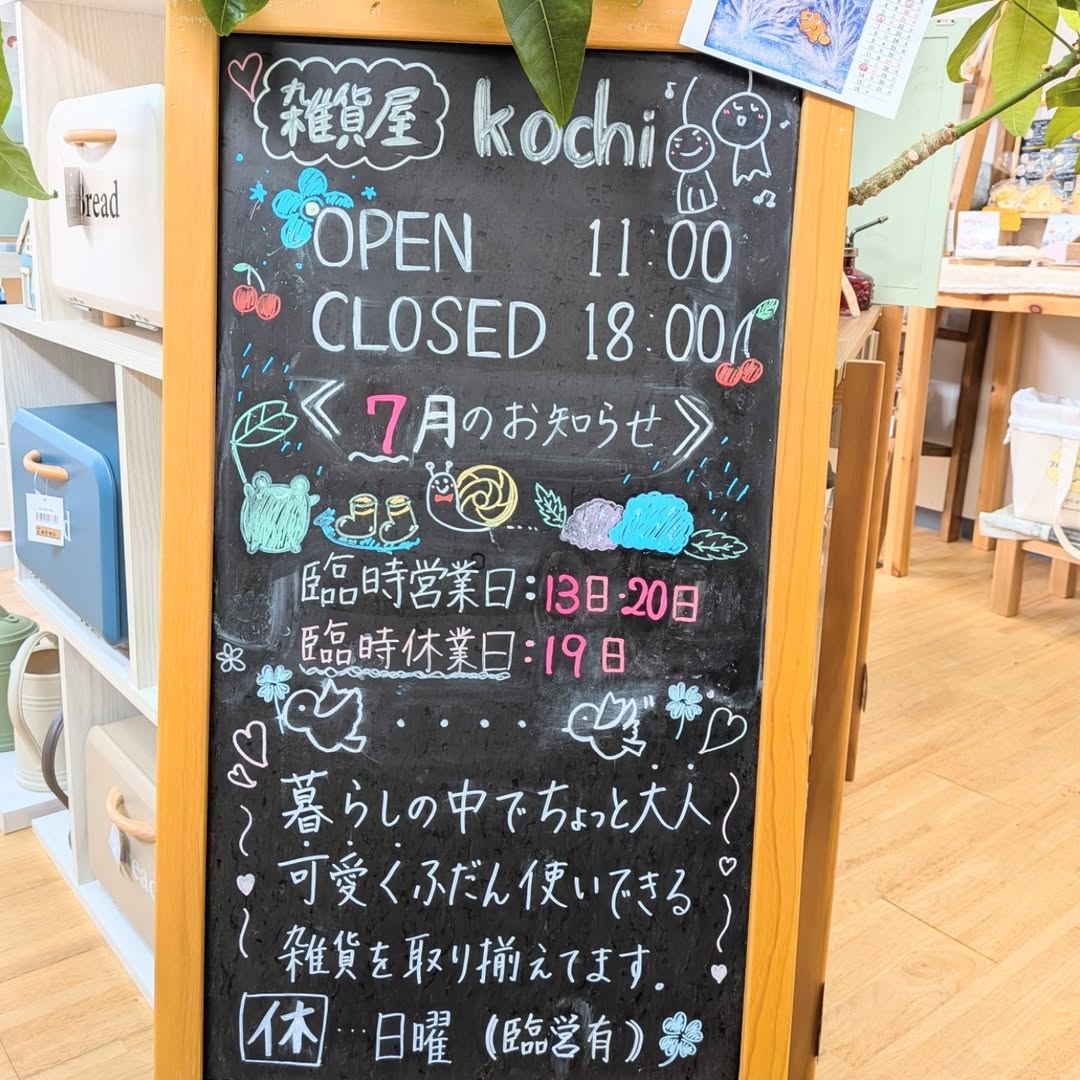 雑貨屋 kochi
OPEN 11:00
CLOSED 18:00
《7月のお知らせ》
臨時営業日:13日・20日
臨時休業日:19日
暮らしの中でちょっと大人
可愛くふだん使いできる
雑貨を取り揃えてます。
休…日曜(臨営有)
Bread